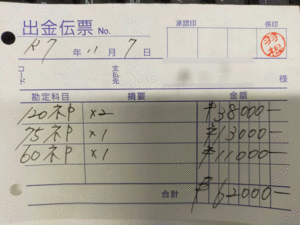 出金伝票 No.
承認印 係印
R7年11月7日
コード 支払先 様
勘定科目 摘要 金額
120ネP ×2 ¥38000-
75ネP ×1 ¥13000-
60ネP ×1 ¥11000-
合計 ¥62000-